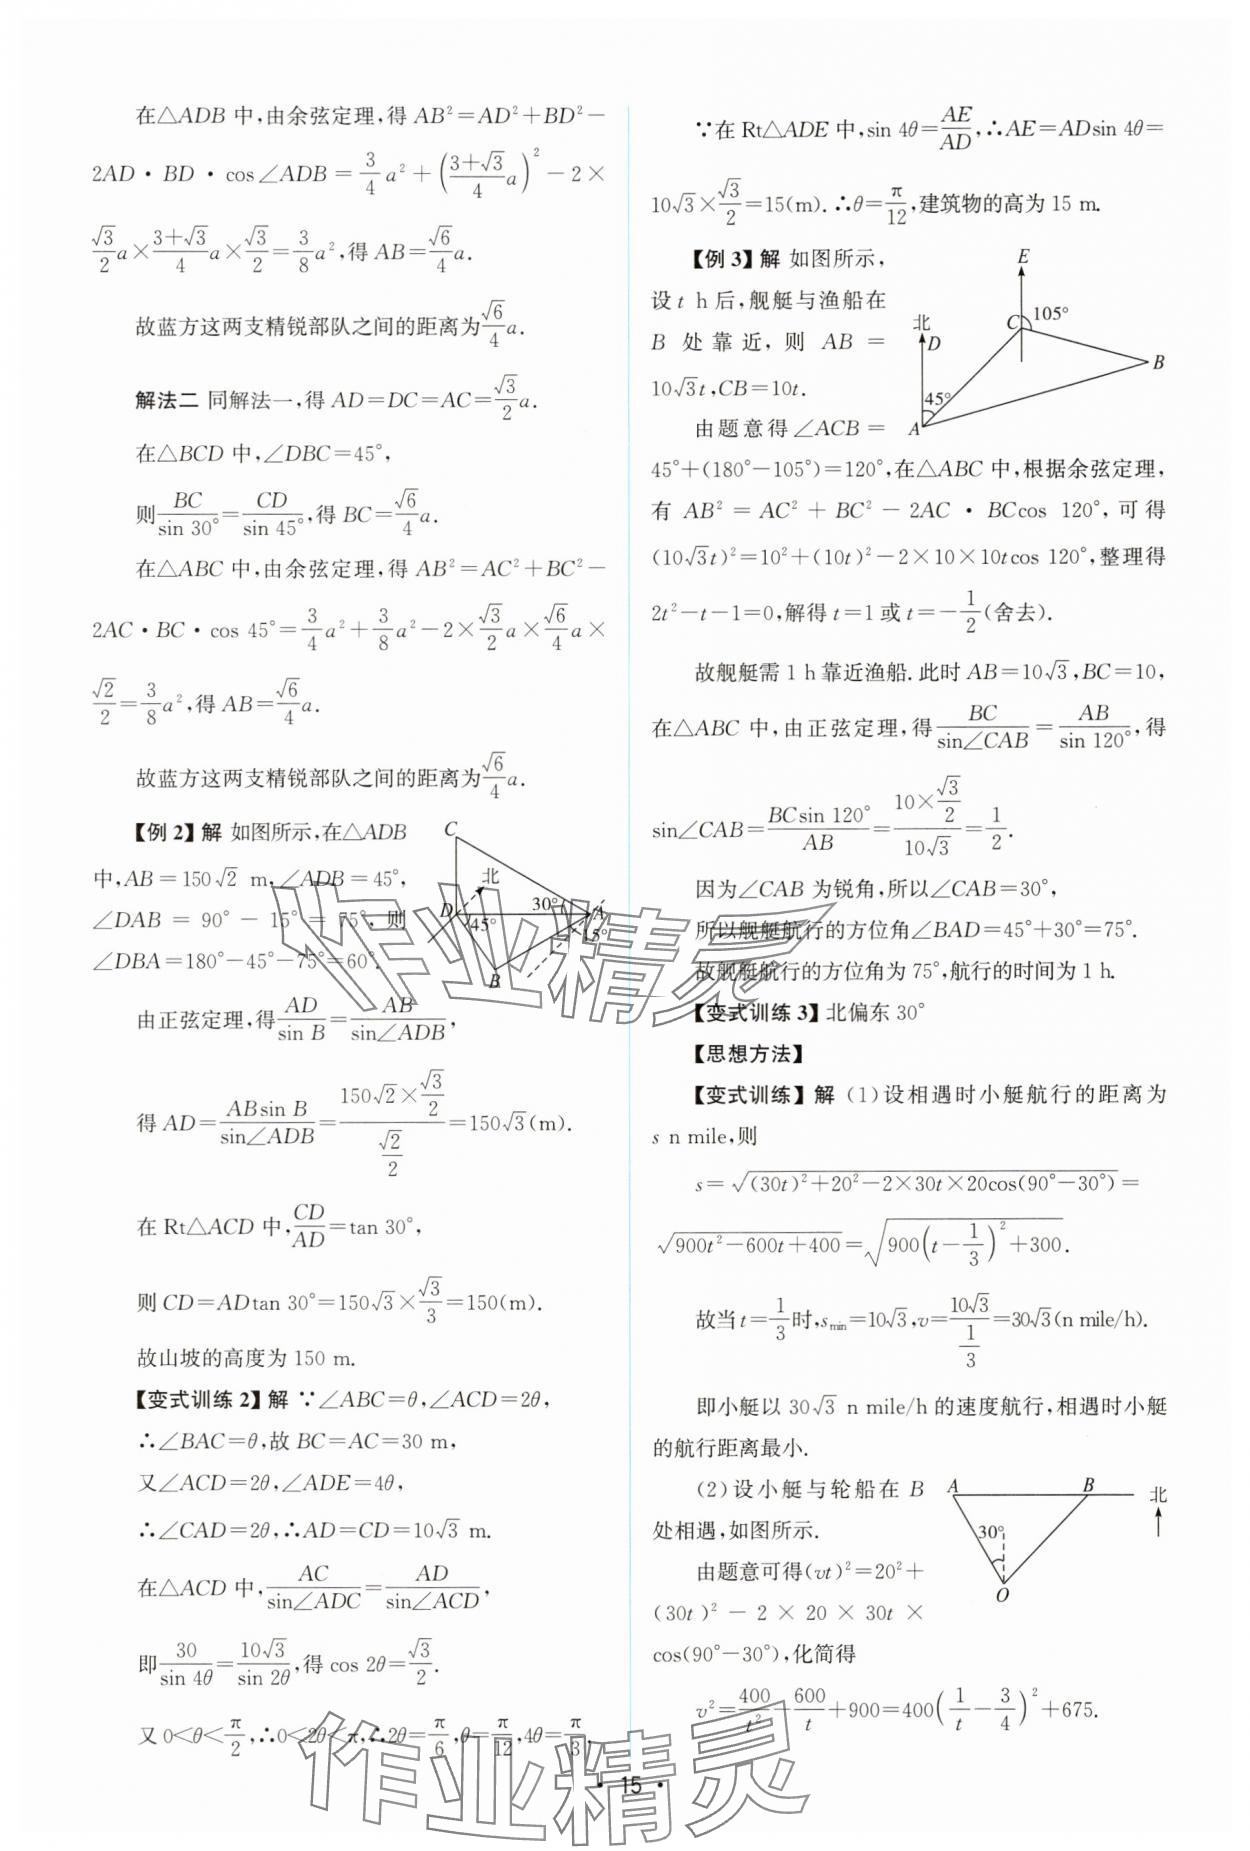 在△ADB 中,由余弦定理,得 AB²=AD²+BD²−
2AD·BD·cos∠ADB=3/4 a²+((3+√3)/4 a)²−2×
√3/2 a×(3+√3)/4 a×√3/2=3/8 a²,得 AB=√6/4 a.
故蓝方这两支精锐部队之间的距离为√6/4 a.
解法二 同解法一,得 AD=DC=AC=√3/2 a.
在△BCD 中,∠DBC=45°,
则BC/sin 30°=CD/sin 45°,得 BC=√6/4 a.
在△ABC 中,由余弦定理,得 AB²=AC²+BC²−
2AC·BC·cos 45°=3/4 a²+3/8 a²−2×√3/2 a×√6/4 a×
√2/2=3/8 a²,得 AB=√6/4 a.
故蓝方这两支精锐部队之间的距离为√6/4 a.
【例 2】解 如图所示,在△ADB
中,AB=150√2 m,∠ADB=45°,
∠DAB=90°−15°=75°,则
∠DBA=180°−45°−75°=60°.
C
北
D
45°
30°
A
15°
B
由正弦定理,得AD/sin B=AB/sin∠ADB,
得 AD=ABsin B/sin∠ADB=(150√2×√3/2)/(√2/2)=150√3(m).
在 Rt△ACD 中,CD/AD=tan 30°,
则 CD=ADtan 30°=150√3×√3/3=150(m).
故山坡的高度为 150 m.
【变式训练 2】解 ∵∠ABC=θ,∠ACD=2θ,
∴∠BAC=θ,故 BC=AC=30 m,
又∠ACD=2θ,∠ADE=4θ,
∴∠CAD=2θ,∴AD=CD=10√3 m.
在△ACD 中,AC/sin∠ADC=AD/sin∠ACD,
即30/sin 4θ=10√3/sin 2θ,得 cos 2θ=√3/2.
又 0<θ<π/2,∴0<2θ<π,∴2θ=π/6,θ=π/12,4θ=π/3,
∵在 Rt△ADE 中,sin 4θ=AE/AD,∴AE=ADsin 4θ=
10√3×√3/2=15(m).∴θ=π/12,建筑物的高为 15 m.
【例 3】解 如图所示,
设 t h 后,舰艇与渔船在
B 处靠近,则 AB=
10√3t,CB=10t.
由题意得∠ACB=
E
北
C
105°
D
B
45°
A
45°+(180°−105°)=120°,在△ABC 中,根据余弦定理,
有 AB²=AC²+BC²−2AC·BCcos 120°,可得
(10√3t)²=10²+(10t)²−2×10×10tcos 120°,整理得
2t²−t−1=0,解得 t=1 或 t=−1/2(舍去).
故舰艇需 1 h 靠近渔船.此时 AB=10√3,BC=10,
在△ABC 中,由正弦定理,得BC/sin∠CAB=AB/sin 120°,得
sin∠CAB=BCsin 120°/AB=(10×√3/2)/(10√3)=1/2.
因为∠CAB 为锐角,所以∠CAB=30°,
所以舰艇航行的方位角∠BAD=45°+30°=75°.
故舰艇航行的方位角为 75°,航行的时间为 1 h.
【变式训练 3】北偏东 30°
【思想方法】
【变式训练】解 (1)设相遇时小艇航行的距离为
s n mile,则
s=√((30t)²+20²−2×30t×20cos(90°−30°))=
√(900t²−600t+400)=√(900(t−1/3)²+300).
故当 t=1/3时,sₘᵢₙ=10√3,v=10√3/(1/3)=30√3(n mile/h).
即小艇以 30√3 n mile/h 的速度航行,相遇时小艇
的航行距离最小.
(2)设小艇与轮船在 B
处相遇,如图所示.
由题意可得(vt)²=20²+
(30t)²−2×20×30t×
cos(90°−30°),化简得
A
B
北
30°
O
v²=400/t²−600/t+900=400(1/t−3/4)²+675.
·15·
作业精灵
作业精灵